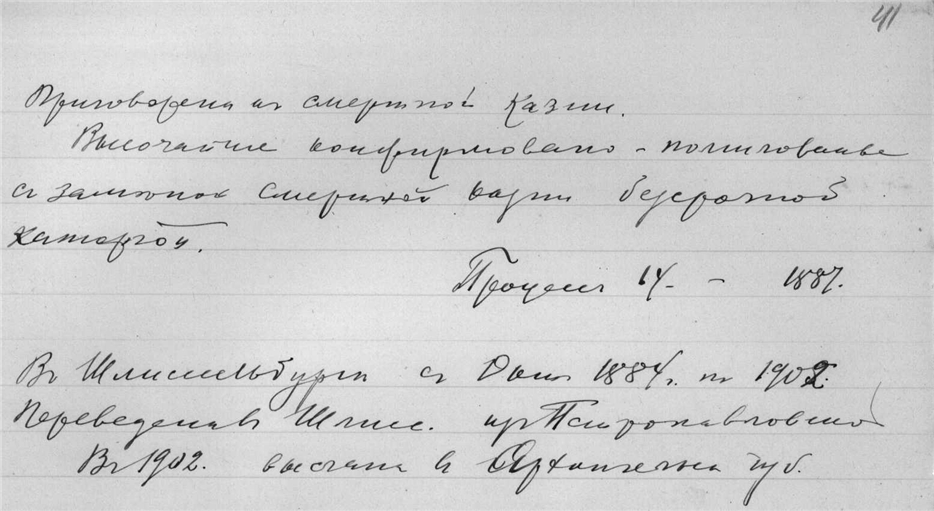 41
Приговорена къ смертной казни.
Высочайше конфирмовано – помилованье
съ заменой смертной казни безсрочной
каторгой.
Процесс 14 – – 1884.
Въ Шлиссельбурге съ Окт 1884 г. по 1902.
Переведена въ Шлисс. из Петропавловской
Въ 1902. выслана в Архангельск губ.